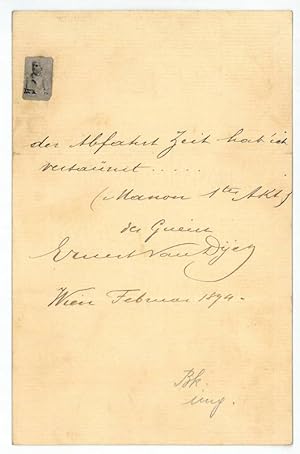 der Abfahrt Zeit hab' ich
versäumt.....
(Manon 1te Akt)
Ernest Van Dyck
Wien Februar 1894.